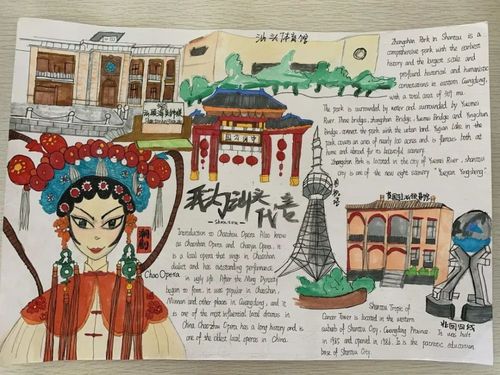 汕头体育馆
Zhongshan Park in Shantou is a
comprehensive park with the earliest
history and the largest scale and
profound historical and humanistic
conversations in eastern Guangdong,
with a total area of
The park is surrounded by water and surrounded by Yuemei
River. Three bridges, Zhongshan Bridge, Yuemei Bridge and Yingchun
Bridge, connect the park with the urban land. Yujian Lake in the
park covers an area of nearly 100 acres and is famous both at
home and abroad for its beautiful scenery.
Zhongshan Park is located in the city of Yuemei River, Shantou
city is one of the new eight scenery "Yuejian Yongsheng".
我为汕头
代言
- Shantou -
潮剧
Chao Opera
Introduction to Chaozhou Opera Also know
as Chaoshan Opera and Chaoyin Opera, it
is a local opera that sings in Chaoshan
dialect and has outstanding performance
in ugly life. After the Ming Dynasty
began to form, it was popular in Chaoshan,
Minnan and other places in Guangdong, and it
is one of the most influential local dramas in
China. Chaozhou Opera has a long history and is
one of the oldest local operas in China.
Shantou Tropic of
Cancer Tower is located in the western
suburb of Shantou City, Guangdong Province. It was built
in 1985 and opened in 1986. It is the patriotic education
base of Shantou City.
北回归线